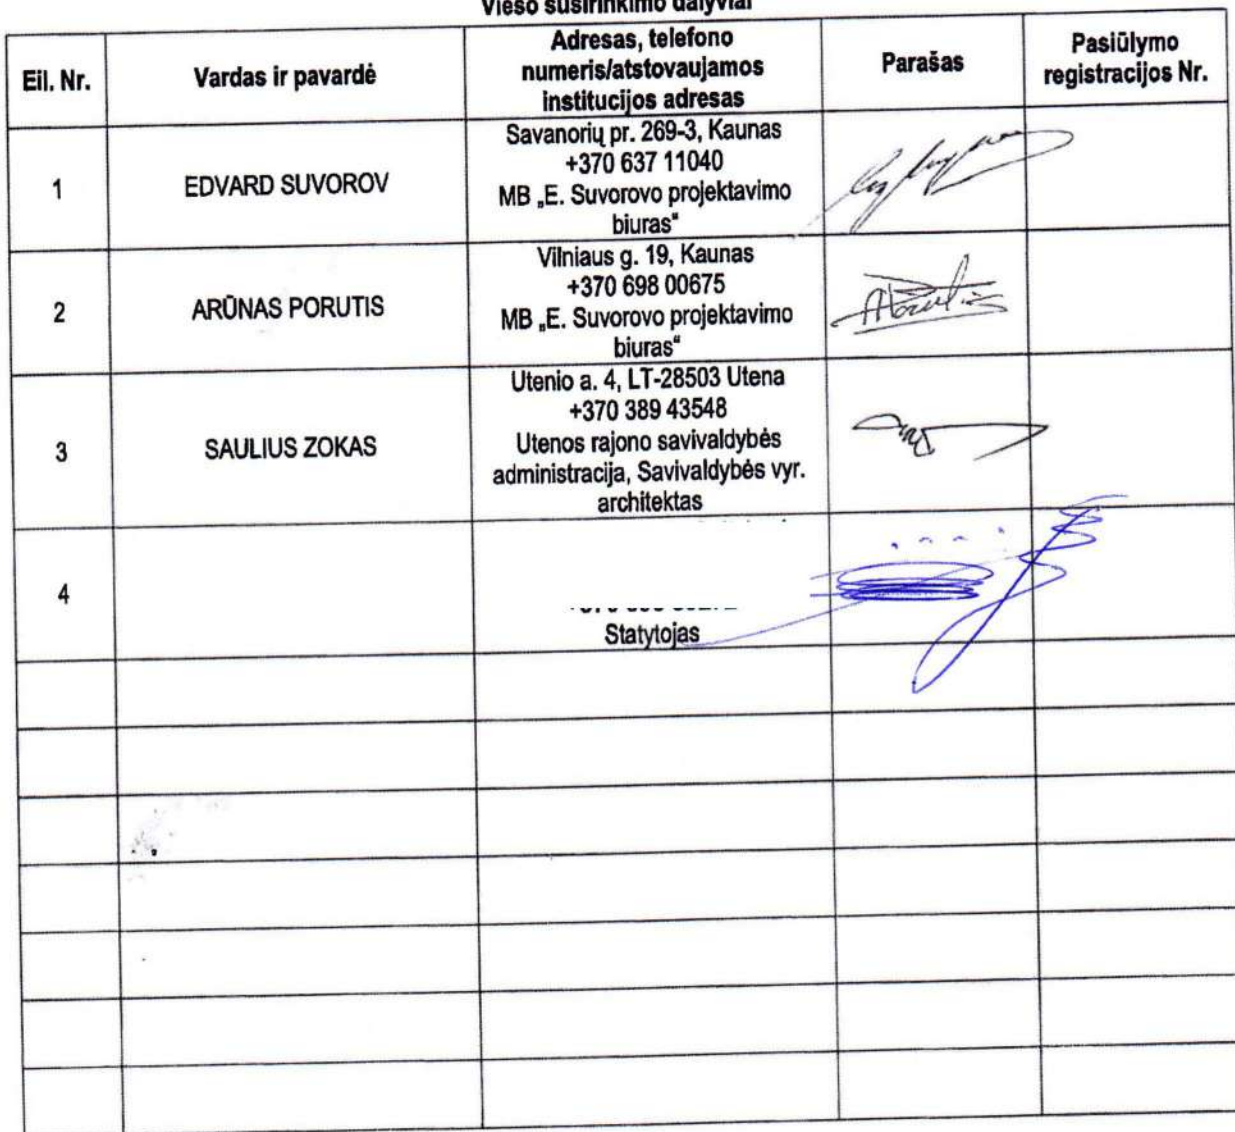 Viešo susirinkimo dalyviai
Eil. Nr.
Vardas ir pavardė
Adresas, telefono
numeris/atstovaujamos
institucijos adresas
Parašas
Pasiūlymo
registracijos Nr.
1
EDVARD SUVOROV
Savanorių pr. 269-3, Kaunas
+370 637 11040
MB „E. Suvorovo projektavimo
biuras“
2
ARŪNAS PORUTIS
Vilniaus g. 19, Kaunas
+370 698 00675
MB „E. Suvorovo projektavimo
biuras“
3
SAULIUS ZOKAS
Utenio a. 4, LT-28503 Utena
+370 389 43548
Utenos rajono savivaldybės
administracija, Savivaldybės vyr.
architektas
4
Statytojas